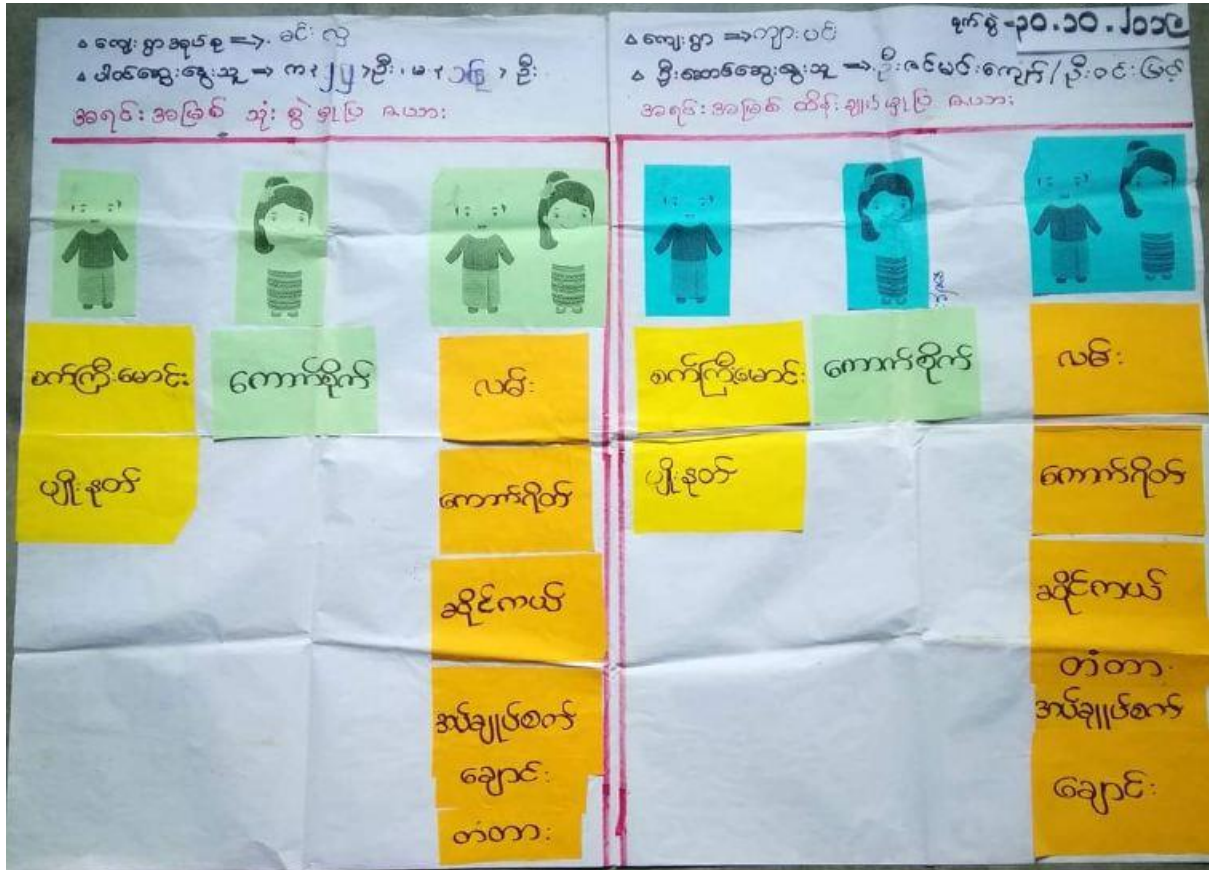 ကျေးရွာအုပ်စု ⇒ ခင်းလှ
ပါဝင်ဆွေးနွေးသူ ⇒ ဦး ၊ မ ဦး
အရင်းအမြစ် သုံးစွဲမှုပြ ဇယား
စက်ကြီးမောင်း
ကောက်စိုက်
လမ်း
ပျိုးနုတ်
ကောက်ရိတ်
ဆိုင်ကယ်
အပ်ချုပ်စက်
ချောင်း
တံတား
ကျေးရွာ ⇒ ကျားပင်
ရက်စွဲ - ၃၀.၁၀.၂၀၁၉
ဦးဆောင်ဆွေးနွေးသူ ⇒ ဦးဇင်မင်းကျော် / ဦးဝင်းမြင့်
အရင်းအမြစ် ထိန်းချုပ်မှုပြ ဇယား
စက်ကြီးမောင်း
ကောက်စိုက်
လမ်း
ပျိုးနုတ်
ကောက်ရိတ်
ဆိုင်ကယ်
တံတား
အပ်ချုပ်စက်
ချောင်း